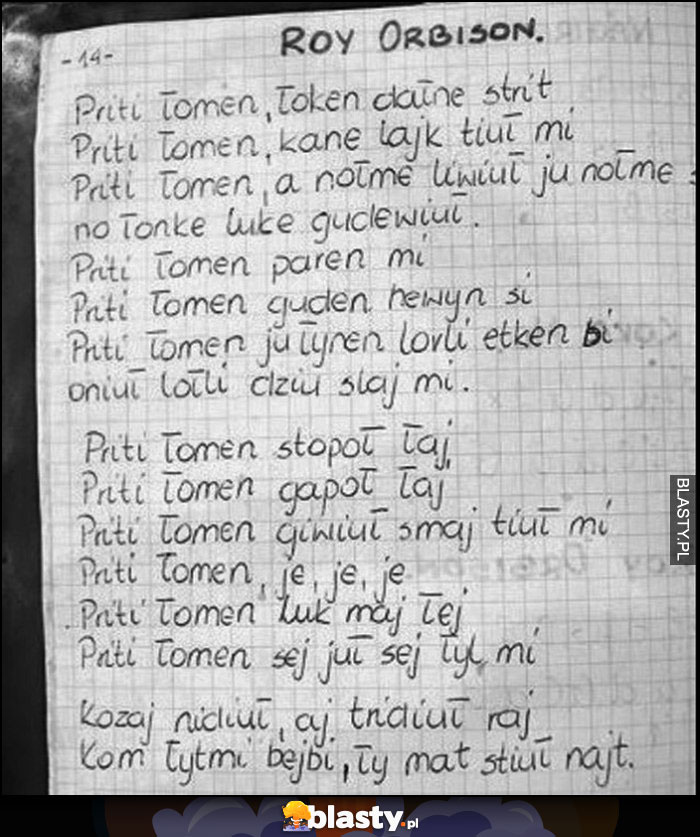 -14-
ROY ORBISON.
Priti łomen, łoken dałne strit
Priti łomen, kane lajk tiuł mi
Priti łomen, a nołme liwiuł ju nołme
no łonke luke gudewiuł.
Priti łomen paren mi
Priti łomen guden hewyn si
Priti łomen ju łyren lovli etken bi
oniuł łotli dziu slaj mi.
Priti łomen stopoł łaj,
Priti łomen gapoł łaj
Priti łomen giwiuł smaj tiuł mi
Priti łomen, je, je, je
Priti łomen luk maj łej
Priti łomen sej juł sej łyl mi
Kozaj nidiuł, aj tridiuł raj
Kom łytmi bejbi, ły mat stiuł najt.
BLASTY.PL
blasty.pl